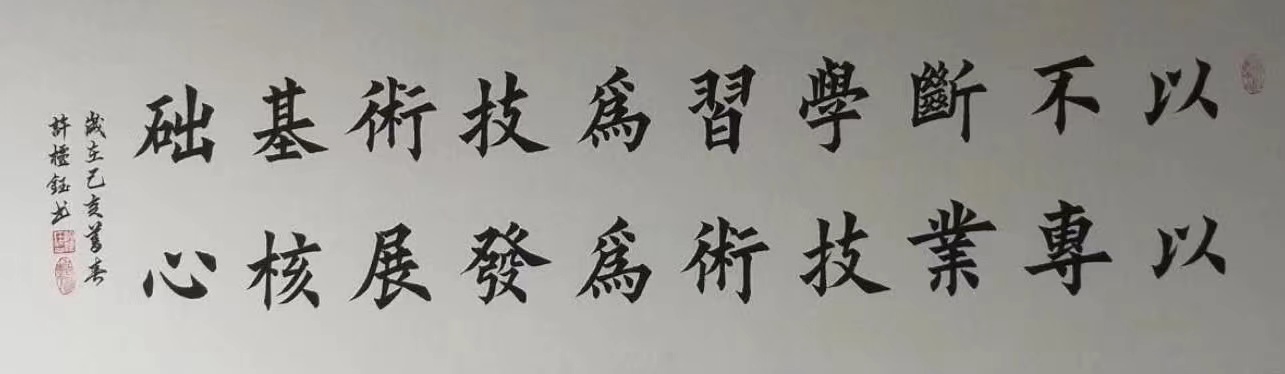 以不斷學習為技術基础
以專業技術為發展核心
歲在己亥暮春
許櫃鈺书